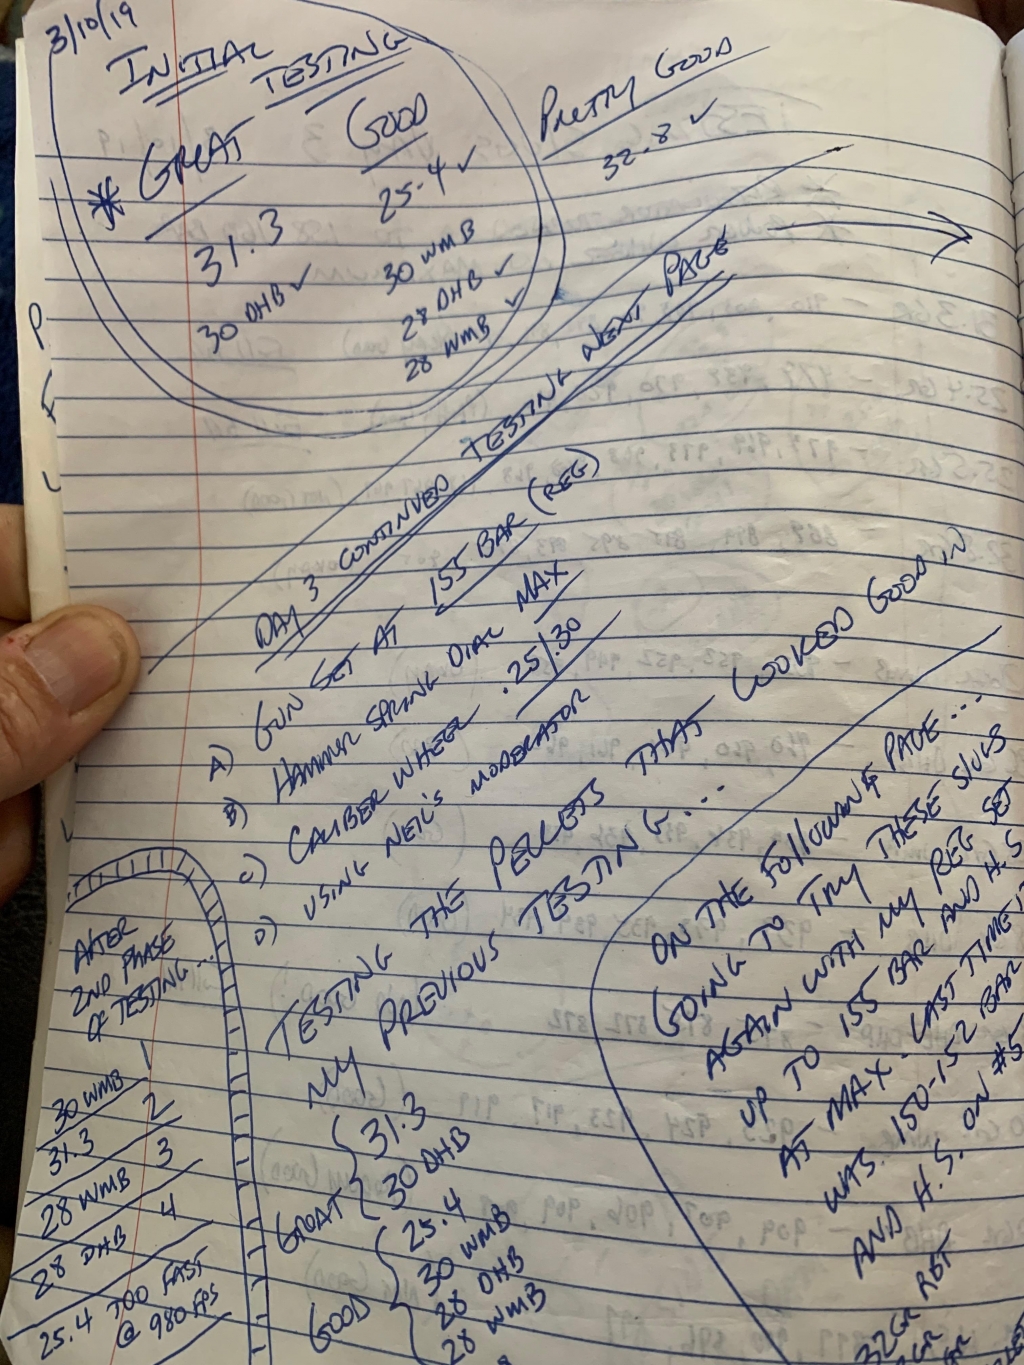 3/10/19
INITIAL TESTING
* GREAT
31.3
30 DHB ✓
GOOD
25.4 ✓
30 WMB
28 DHB ✓
28 WMB ✓
PRETTY GOOD
32.8 ✓
DAY 3 CONTINUED TESTING NEXT PAGE
A) GUN SET AT 155 BAR (REG)
B) HAMMER SPRING DIAL MAX
C) CALIBER WHEEL .25/.30
D) USING NEIL'S MODERATOR
TESTING THE PELLETS THAT LOOKED GOOD IN
MY PREVIOUS TESTING...
GREAT { 31.3
30 DHB
GOOD { 25.4
30 WMB
28 DHB
28 WMB
AFTER
2ND PHASE
OF TESTING...
30 WMB 1
31.3 2
28 WMB 3
28 DHB 4
25.4 TOO FAST
@ 980 FPS
ON THE FOLLOWING PAGE...
GOING TO TRY THESE SLUGS
AGAIN WITH MY REG SET
UP TO 155 BAR AND H.S
AT MAX - LAST TIME IT
WAS 150-152 BAR
AND H.S. ON #5
32GR RBT
GR
P
F
L